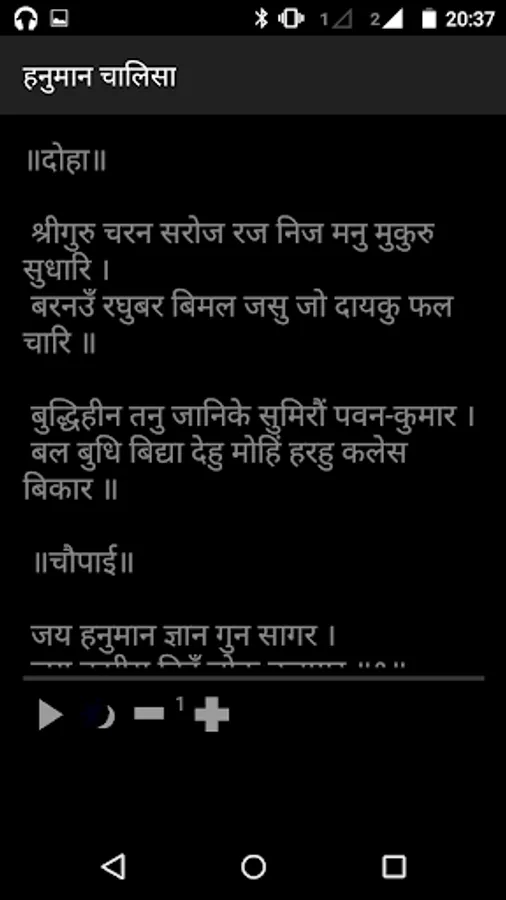 1 2 20:37
हनुमान चालिसा
॥दोहा॥
श्रीगुरु चरन सरोज रज निज मनु मुकुरु
सुधारि ।
बरनउँ रघुबर बिमल जसु जो दायकु फल
चारि ॥
बुद्धिहीन तनु जानिके सुमिरौं पवन-कुमार ।
बल बुधि बिद्या देहु मोहिं हरहु कलेस
बिकार ॥
॥चौपाई॥
जय हनुमान ज्ञान गुन सागर ।
1